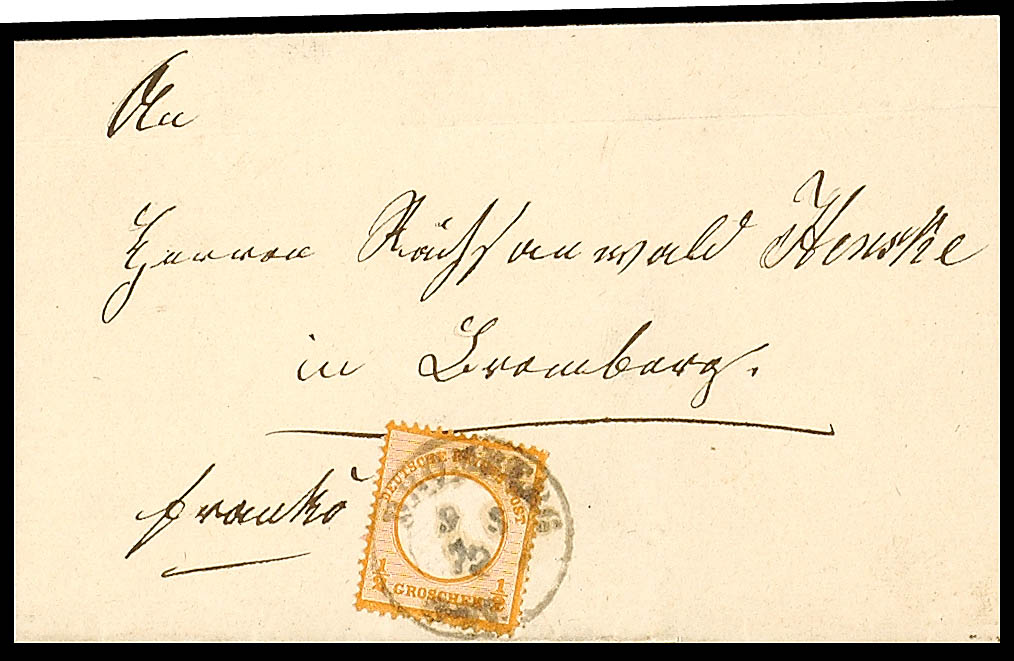 An
Herren Rächtsanwald Henske
in Bromberg.
franko
DEUTSCHE REICHS-POST
9 9
72
½ GROSCHEN ½